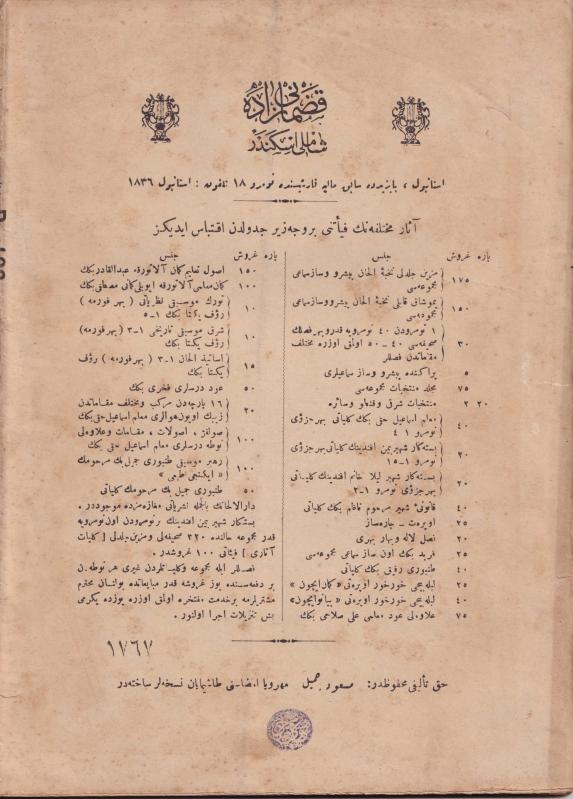 قضمانی زاده
شاملی اسكندر
استانبول ، بایزیدده سابق مالیه قارشیسنده نومرو ١٨ تلفون : استانبول ١٨٣٦
آثار مختلفه‌نك فیأتنی بروجه‌زیر جدولدن اقتباس ایدیكز
پاره غروش جنس
١٧٥ مزین جلدلی نخبهٔ الحان پیشرو وسازسماعی مجموعه‌سی
١٥٠ یموشاق قابلی نخبهٔ الحان پیشرو وسازسماعی مجموعه‌سی
٣٠ ١ نومرودن ٤٠ نومرویه قدر وبهر فصلك صحیفه‌سی ٤٠ - ٥٠ اولمق اوزره مختلف مقاماتدن فصللر
٥ پراكنده پیشرو وساز سماعیلری
٧٥ مجلد منتخبات مجموعه‌سی
٢٠ ٢ منتخبات شرقی وقانطو وسائره
٤٠ معلم اسماعیل حقی بكك كلیاتی بهر جزؤی نومرو ١ ٤
٢٠ بسته‌كار شهیر بیمن افندینك كلیاتی بهر جزؤی نومرو ١-١٥
٢٠ بسته‌كار شهیر لیلا خانم افندینك كلیاتی بهر جزؤی نومرو ١-٣
٤٠ قانونیٔ شهیر مرحوم ناظم بكك كلیاتی
٢٥ اوپره‌ت - چاره‌ساز
٢٠ فصل لاله وبهار بهری
٢٥ فرید بكك اون ساز سماعی مجموعه‌سی
٤٠ طنبوری رفیق بكك كلیاتی
٢٥ لبله‌بیجی خورخور اوپره‌تی « كمان ایچون »
٤٠ لبله‌بیجی خورخور اوپره‌تی « پیانو ایچون »
٧٥ علاوه‌لی عود معلمی علی صلاحی بكك
پاره غروش جنس
١٥٠ اصول تعلیم كمان آلاتورقه عبدالقادر بكك
١٠٠ كمان معلمی آلاتورقه ایوبلی كمانی مصطفی بكك
١٠ تورك موسیقی نظریاتی ( بهر فورمه ) رؤف یكتا بكك ١-٥
١٠ شرق موسیقی تاریخی ١-٣ ( بهر فورمه ) رؤف یكتا بكك
١٥ اساتیذ الحان ١-٣ ( بهر فورمه ) رؤف یكتا بكك
٥٠ عود درسلری فخری بكك
٢٠ ١٦ پارچه‌دن مركب ومختلف مقاماتدن زیبك اویون هوالری معلم اسماعیل حقی بكك
١٠٠ صولفژ ، اصولات ، مقامات وعلاوه‌لی نوطه درسلری معلم اسماعیل حقی بكك
١٠٠ رهبر موسیقی طنبوری جمیل بك مرحومك « ایكنجی طبعی »
٥٠ طنبوری جمیل بك مرحومك كلیاتی
دارالالحانك بالجمله نشریاتی مغازه‌مزده موجوددر .
بسته‌كار شهیر بیمن افندینك بر نومرودن اون نومرویه
قدر مجموعه حالنده ٢٢٠ صحیفه‌لی ومزین جلدلی [ كلیات
آثاری ] فیئاتی ١٠٠ غروشدر .
فصللر ایله مجموعه وكلیاتلردن غیری هر نوطه‌دن
بر دفعه‌سنده یوز غروشه قدر مبایعاتده بولنان محترم
مشتریلرمه بر خدمت مفتخره اولمق اوزره یوزده یكرمی
بش تنزیلات اجرا اولنور .
١٧٦٧
حق تألیفی محفوظدر : مسعود جمیل مهر ویا امضاسنی طاشیمایان نسخه‌لر ساخته‌در